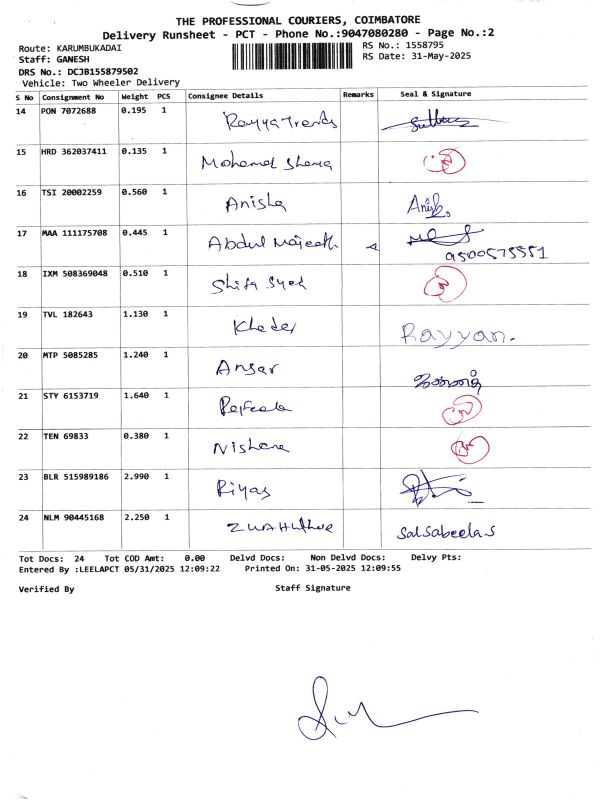 THE PROFESSIONAL COURIERS, COIMBATORE
Delivery Runsheet - PCT - Phone No.:9047080280 - Page No.:2
Route: KARUMBUKADAI
RS No.: 1558795
Staff: GANESH
RS Date: 31-May-2025
DRS No.: DCJB155879502
Vehicle: Two Wheeler Delivery
S No Consignment No Weight PCS Consignee Details Remarks Seal & Signature
14 PON 7072688 0.195 1 Rayya Trends
15 HRD 362037411 0.135 1 Mohamed
16 TSI 20002259 0.560 1 Anisha
17 MAA 111175708 0.445 1 Abdul Majeeth
9500575551
18 IXM 508369048 0.510 1 Shifa Syed
19 TVL 182643 1.130 1 Kheder Rayyan.
20 MTP 5085285 1.240 1 Ansar
21 STY 6153719 1.640 1
22 TEN 69833 0.380 1 Nishana
23 BLR 515989186 2.990 1 Riyas
24 NLM 90445168 2.250 1 Salsabeela.S
Tot Docs: 24 Tot COD Amt: 0.00 Delvd Docs: Non Delvd Docs: Delvy Pts:
Entered By :LEELAPCT 05/31/2025 12:09:22 Printed On: 31-05-2025 12:09:55
Verified By Staff Signature